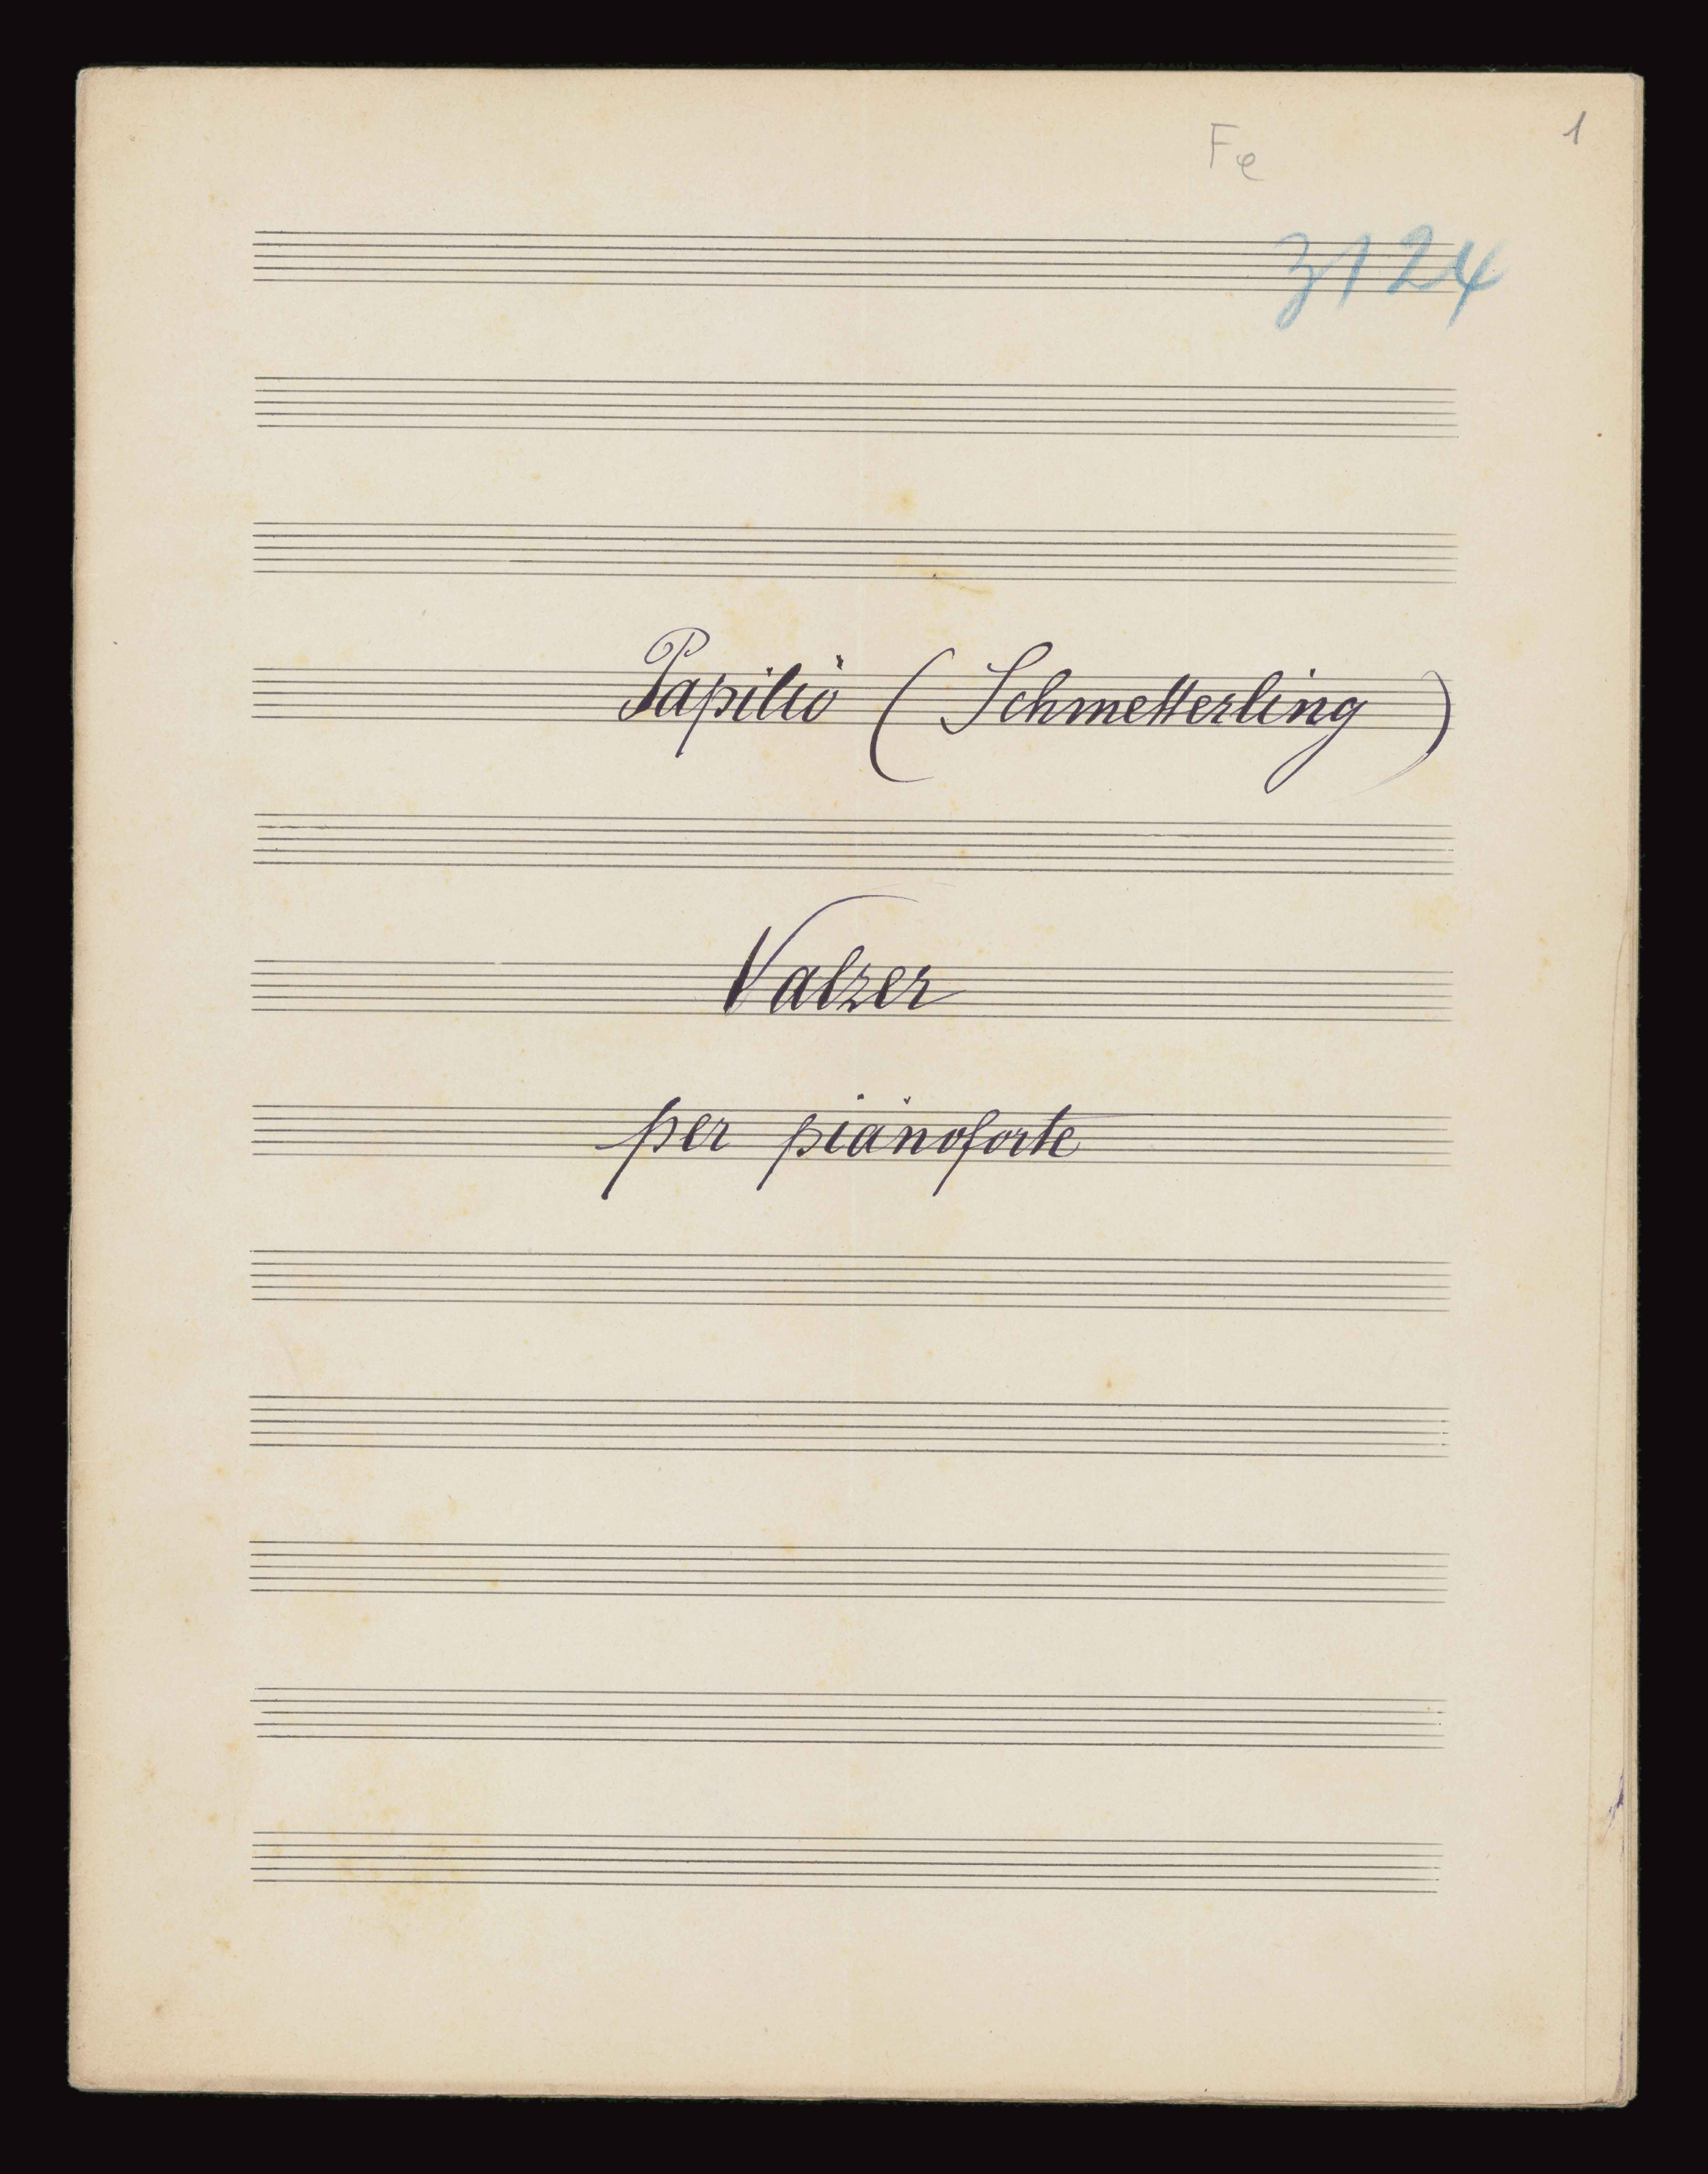 Fe 1
3124
Papilio (Schmetterling)
Valzer
per pianoforte